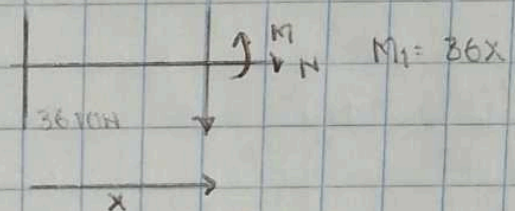 M
N
M₁ = 36x
36 kN
x